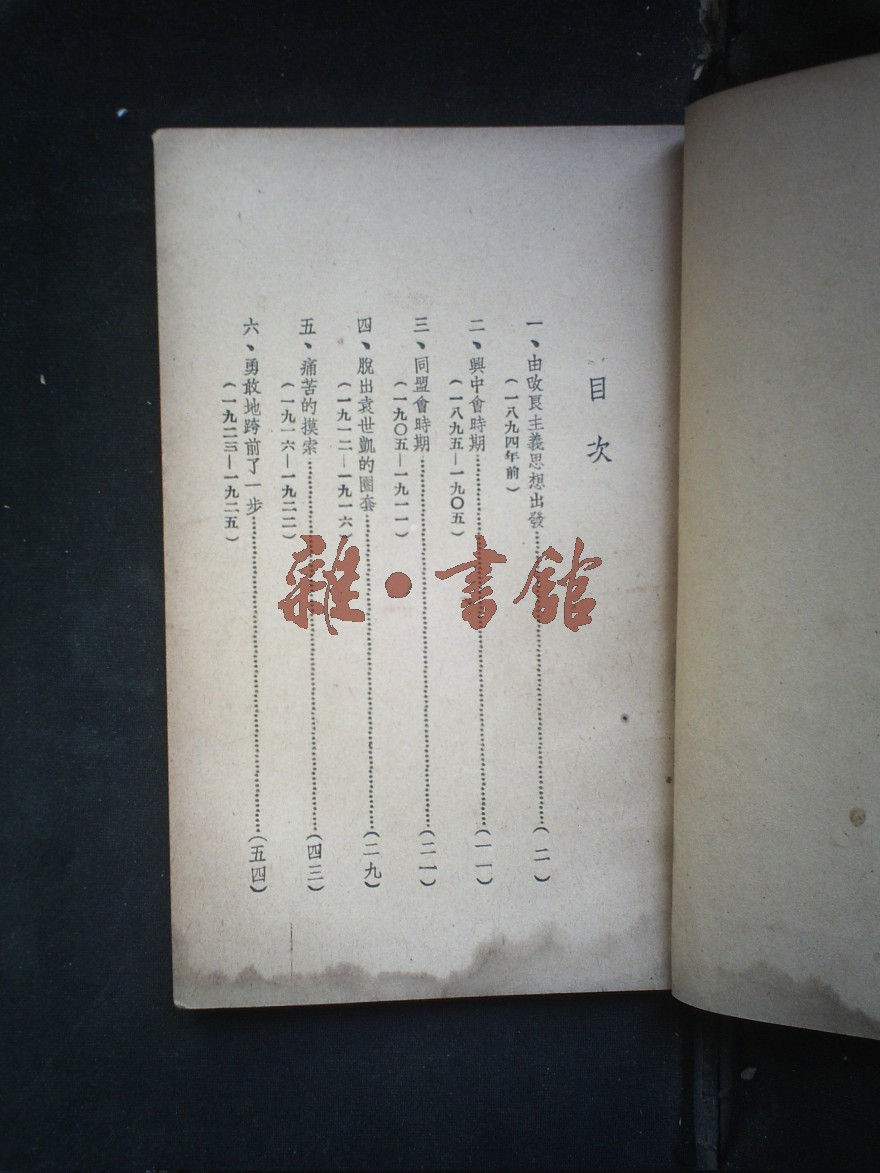 目次
一、由改良主義思想出發……(二)
(一八九四年前)
二、興中會時期……(一一)
(一八九五—一九〇五)
三、同盟會時期……(二一)
(一九〇五—一九一一)
四、脫出袁世凱的圈套……(二九)
(一九一二—一九一六)
五、痛苦的摸索……(四三)
(一九一六—一九二二)
六、勇敢地跨前了一步……(五四)
(一九二三—一九二五)
雜·書館